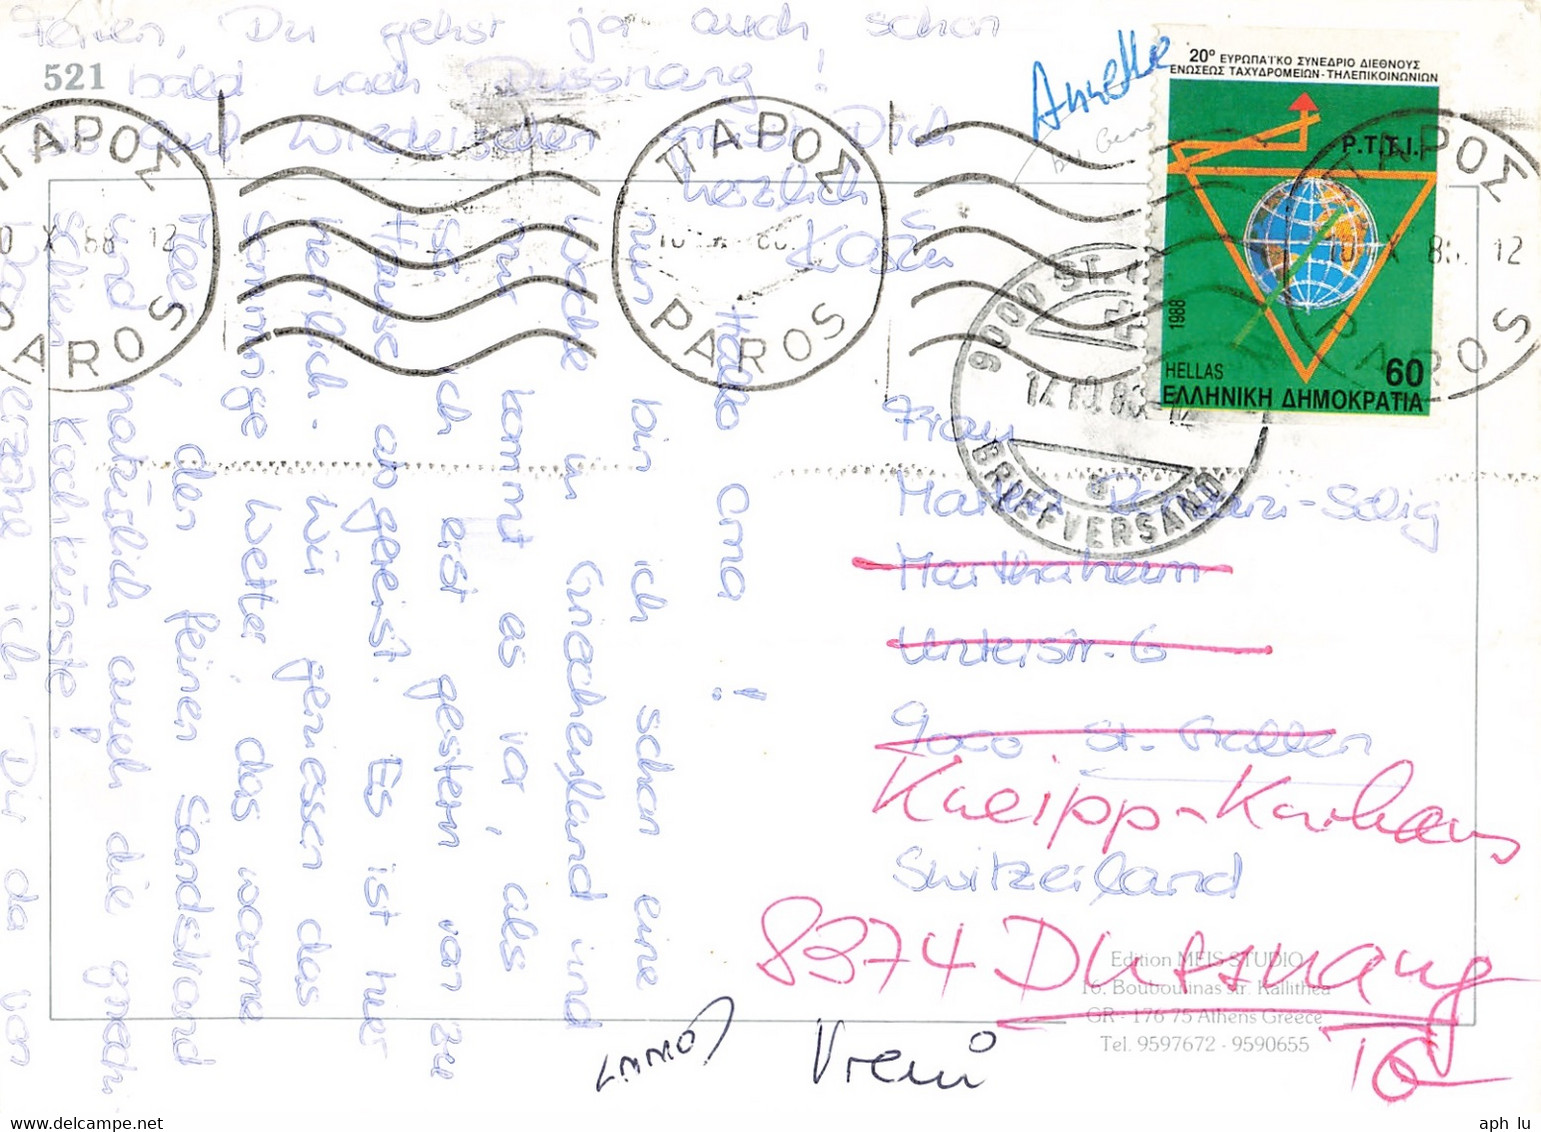 Hallo Oma!
nun bin ich schon eine
Woche in Griechenland und
mir kommt es vor, als
sei ich erst gestern von zu
Hause abgereist. Es ist hier
herrlich. Wir geniessen das
sonnige Wetter, das warme
Meer, den feinen Sandstrand
und natürlich auch die griech.
schen Kochkünste!
erzähle ich Dir da von
Ferien, Du gehst ja auch schon
bald nach Dussnang!
auf Wiedersehen grüsst Dich
herzlich
521
Annette
20° ΕΥΡΩΠΑΪΚΟ ΣΥΝΕΔΡΙΟ ΔΙΕΘΝΟΥΣ
ΕΝΩΣΕΩΣ ΤΑΧΥΔΡΟΜΕΙΩΝ-ΤΗΛΕΠΙΚΟΙΝΩΝΙΩΝ
P.T.T.I.
1988
HELLAS
60
ΕΛΛΗΝΙΚΗ ΔΗΜΟΚΡΑΤΙΑ
ΠΑΡΟΣ
X 88 12
PAROS
ΠΑΡΟΣ
PAROS
ΠΑΡΟΣ
10 X 88 12
PAROS
9000 ST.
BRIEFVERSAND
Frau
-Selig
Marthaheim
Unterstr. 6
9000 St. Gallen
Kneipp-Kurhaus
Switzerland
8374 Dussnang
TG
Edition MEIS STUDIO
16, Bouboulinas str. Kallithea
GR - 176 75 Athens Greece
Tel. 9597672 - 9590655
Vreni
aph_lu